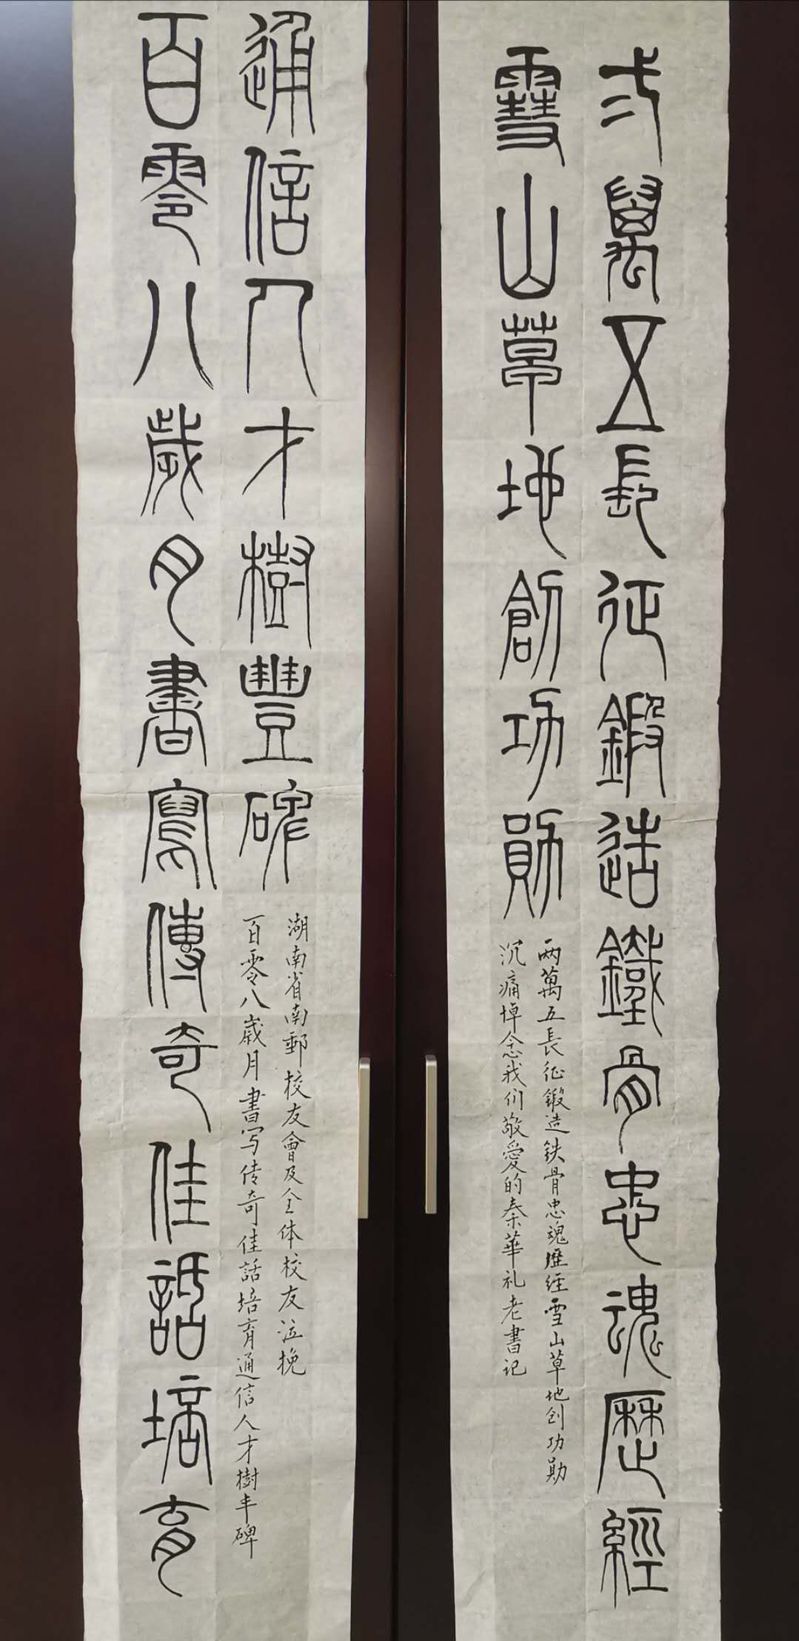 弍萬五長征鍛造鐵骨忠魂歷經
雪山草地創功勛
两萬五長征鍛造铁骨忠魂歷经雪山草地创功勋
沉痛悼念我们敬愛的秦華礼老書记
百零八歲月書寫傳奇佳話培育
通信人才樹豐碑
湖南省南郵校友會及全体校友泣挽
百零八歲月書写传奇佳話培育通信人才樹丰碑